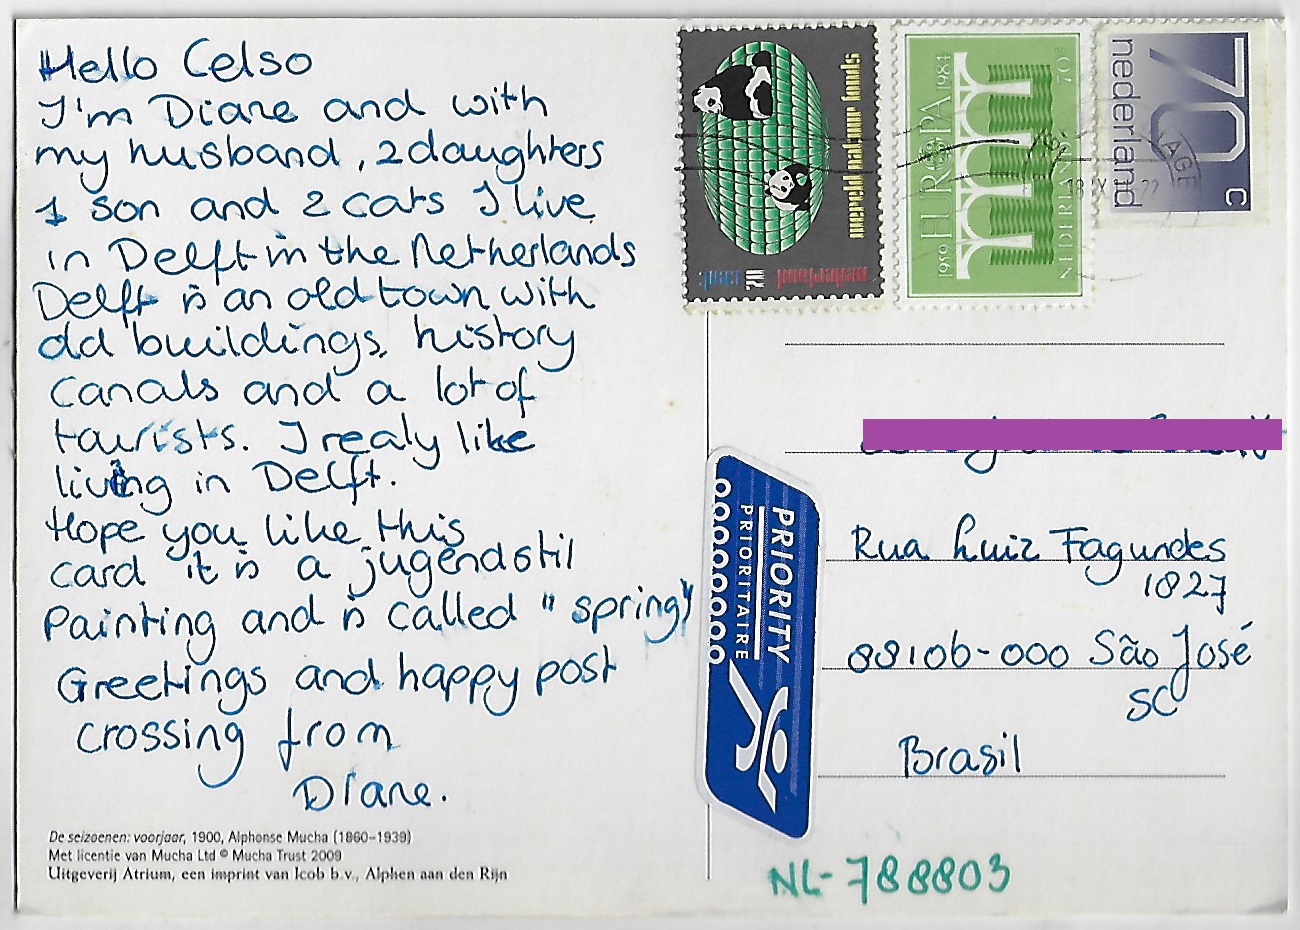 Hello Celso
I'm Diane and with
my husband, 2 daughters
1 son and 2 cats I live
in Delft in the Netherlands
Delft is an old town with
old buildings, history
canals and a lot of
tourists. I realy like
living in Delft.
Hope you like this
card it is a jugendstil
Painting and is called "spring"
Greetings and happy post
crossing from
Diane.
De seizoenen: voorjaar, 1900, Alphonse Mucha (1860–1939)
Met licentie van Mucha Ltd © Mucha Trust 2009
Uitgeverij Atrium, een imprint van Icob b.v., Alphen aan den Rijn
wereld natuur fonds
nederland
cent
1959 EUROPA 1984
NEDERLAND
70c
70
c
nederland
PRIORITY
PRIORITAIRE
Rua Luiz Fagundes
1827
88106-000 São José
SC
Brasil
NL-788803